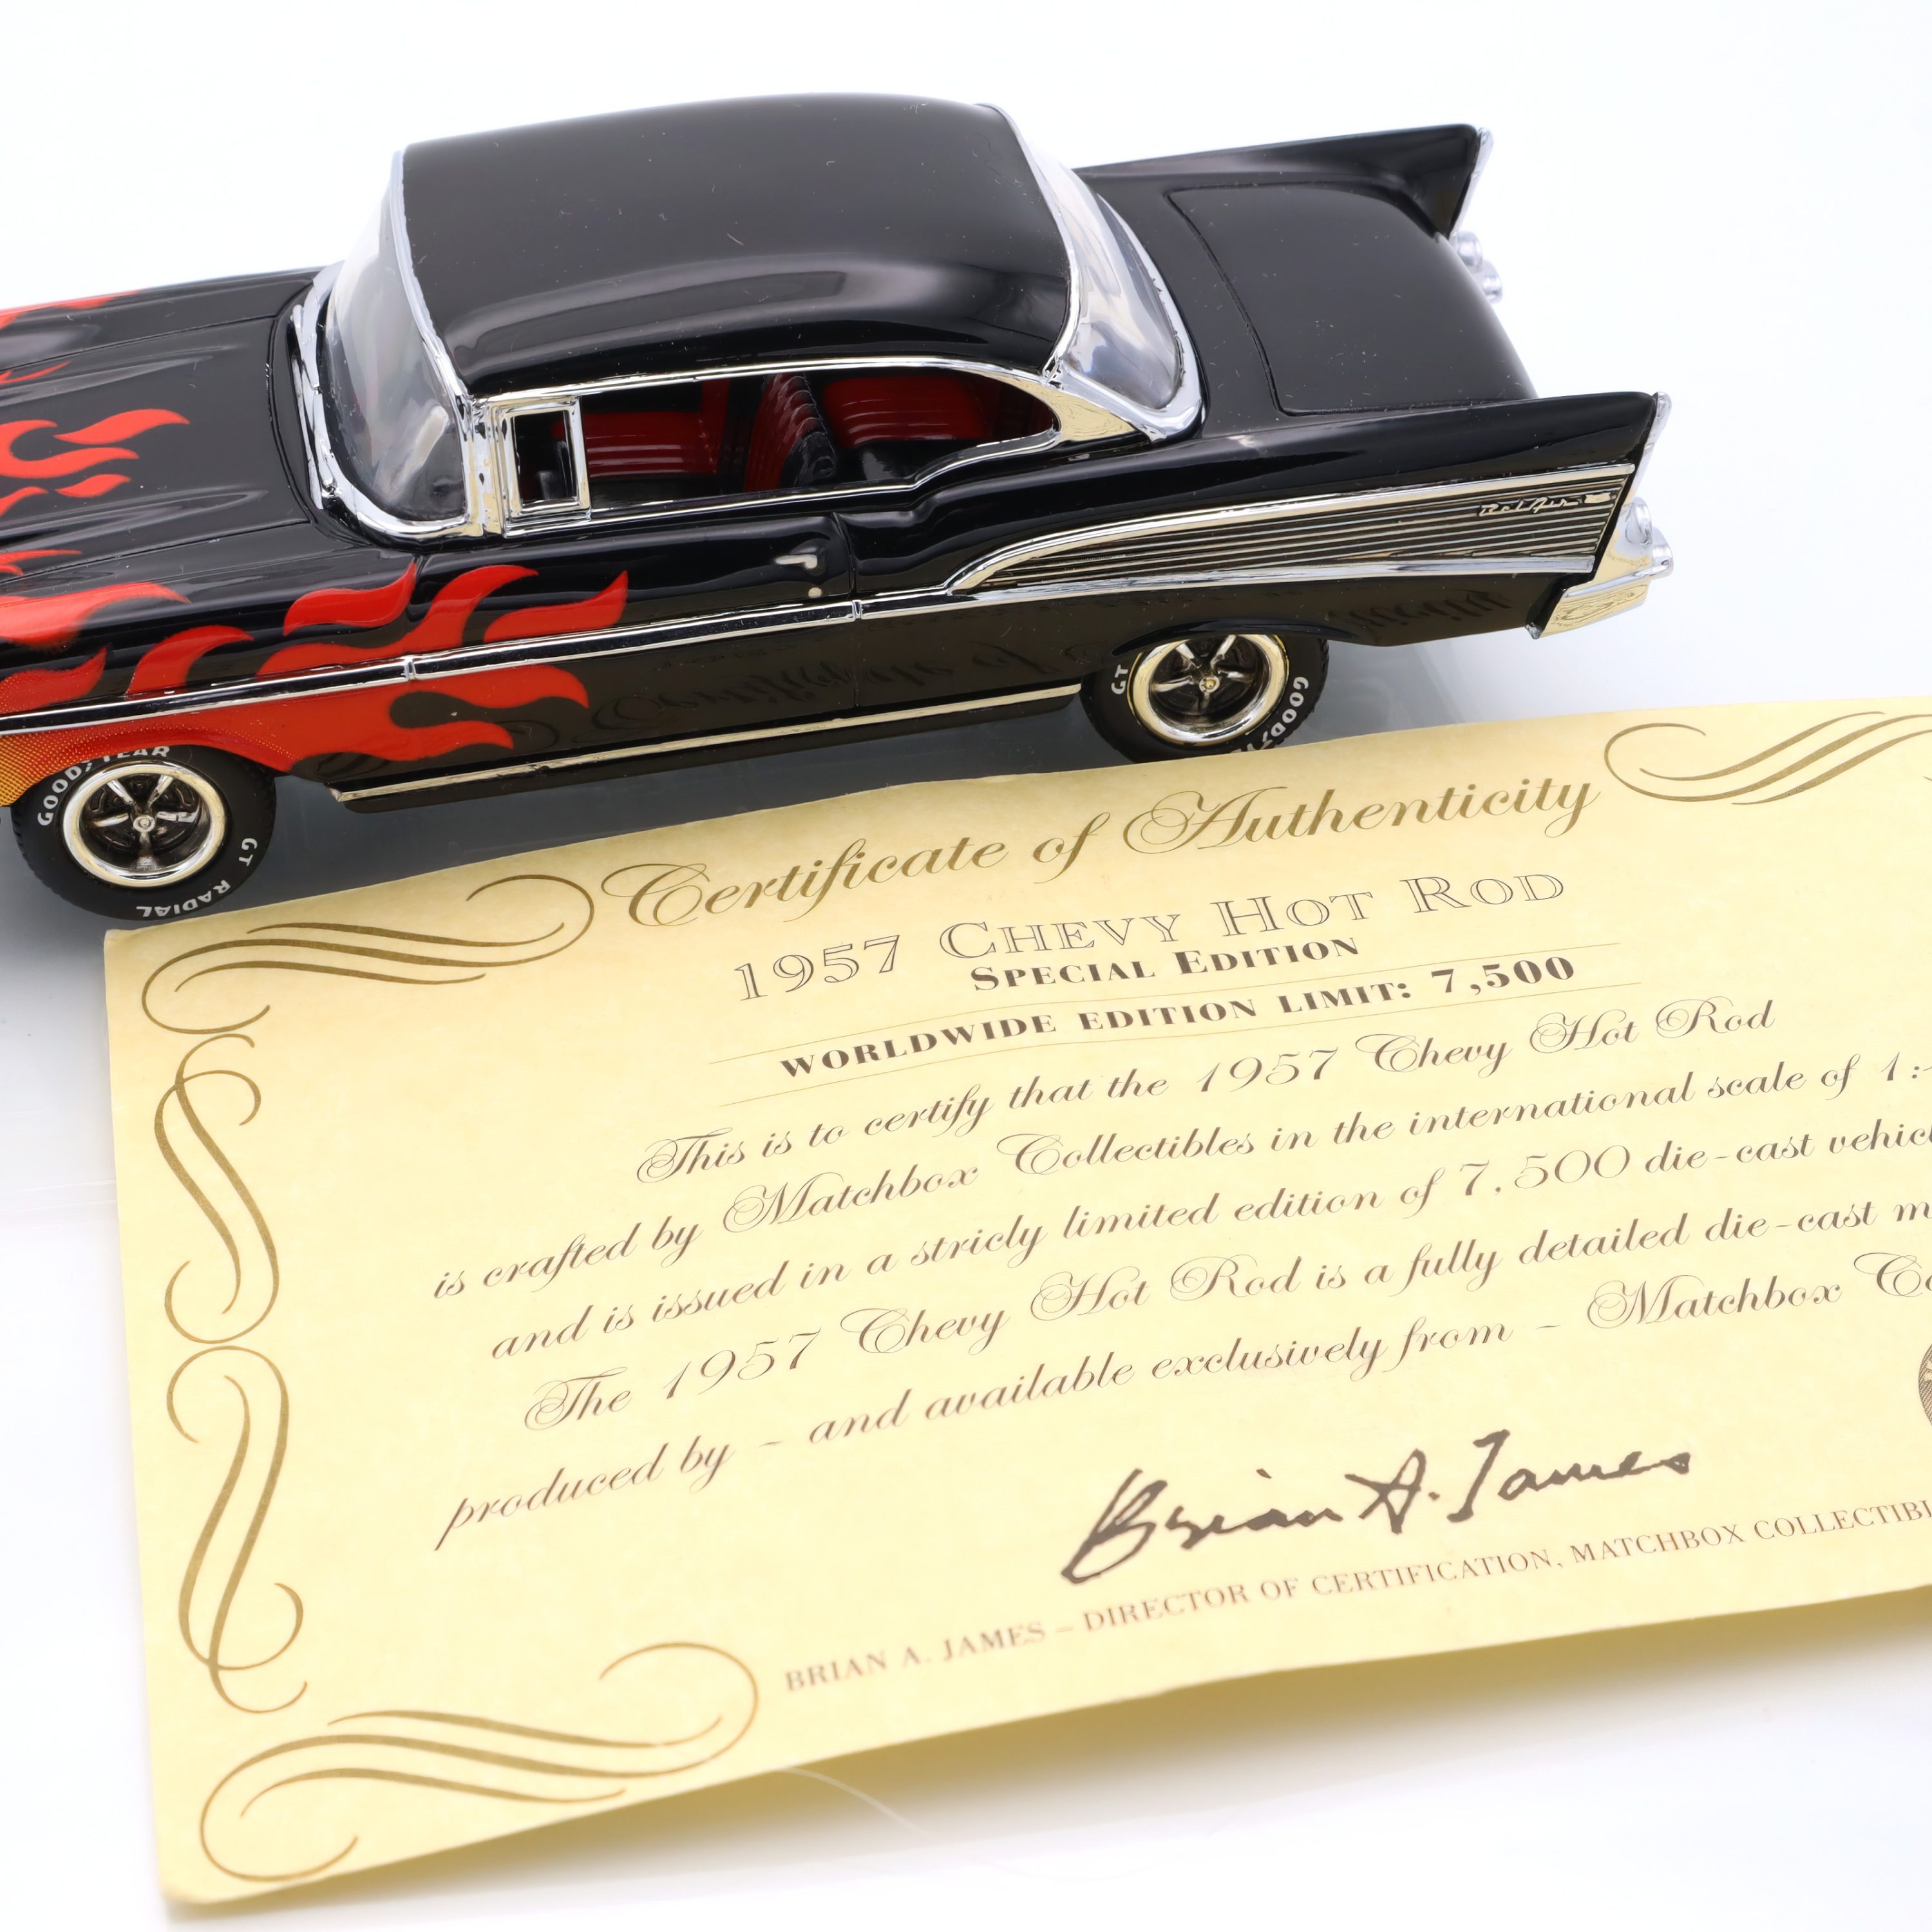 Bel Air
GOODYEAR
GT RADIAL
GT
Certificate of Authenticity
1957 CHEVY HOT ROD
SPECIAL EDITION
WORLDWIDE EDITION LIMIT: 7,500
This is to certify that the 1957 Chevy Hot Rod
is crafted by Matchbox Collectibles in the international scale of 1:
and is issued in a stricly limited edition of 7,500 die-cast
The 1957 Chevy Hot Rod is a fully detailed die-cast
produced by – and available exclusively from – Matchbox
Brian A. James
BRIAN A. JAMES – DIRECTOR OF CERTIFICATION, MATCHBOX